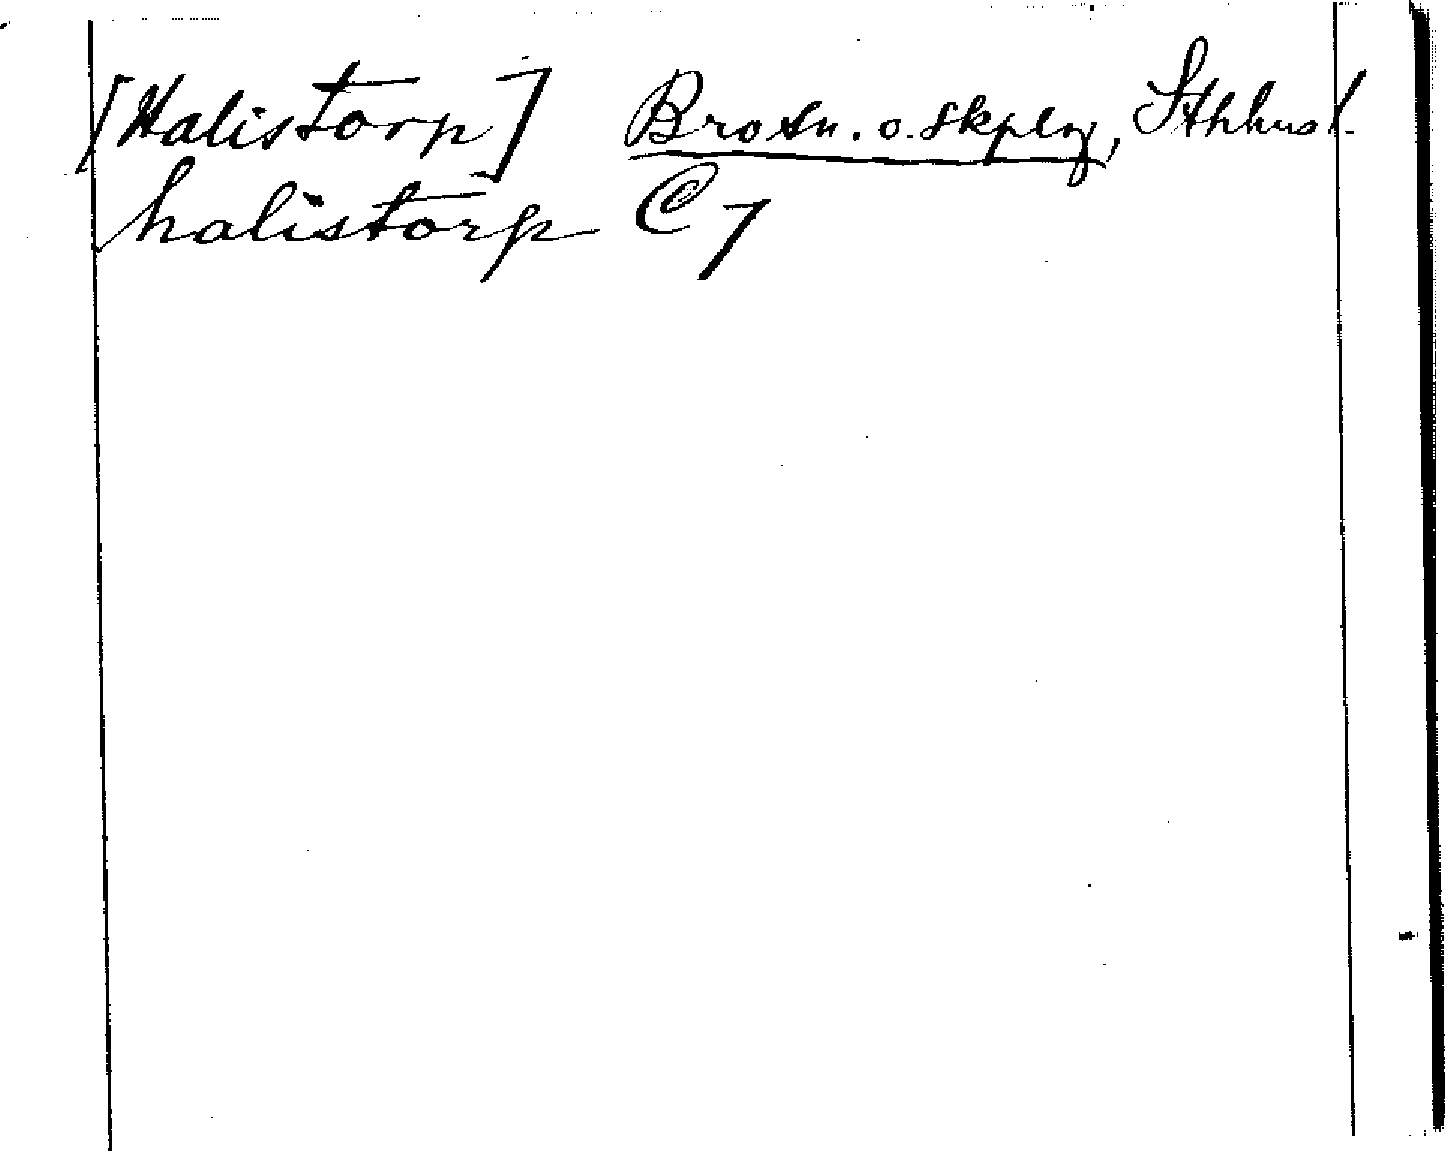 [Halistorp] Brotn. o. Skplg, Sthhusl.
halistorp C 7